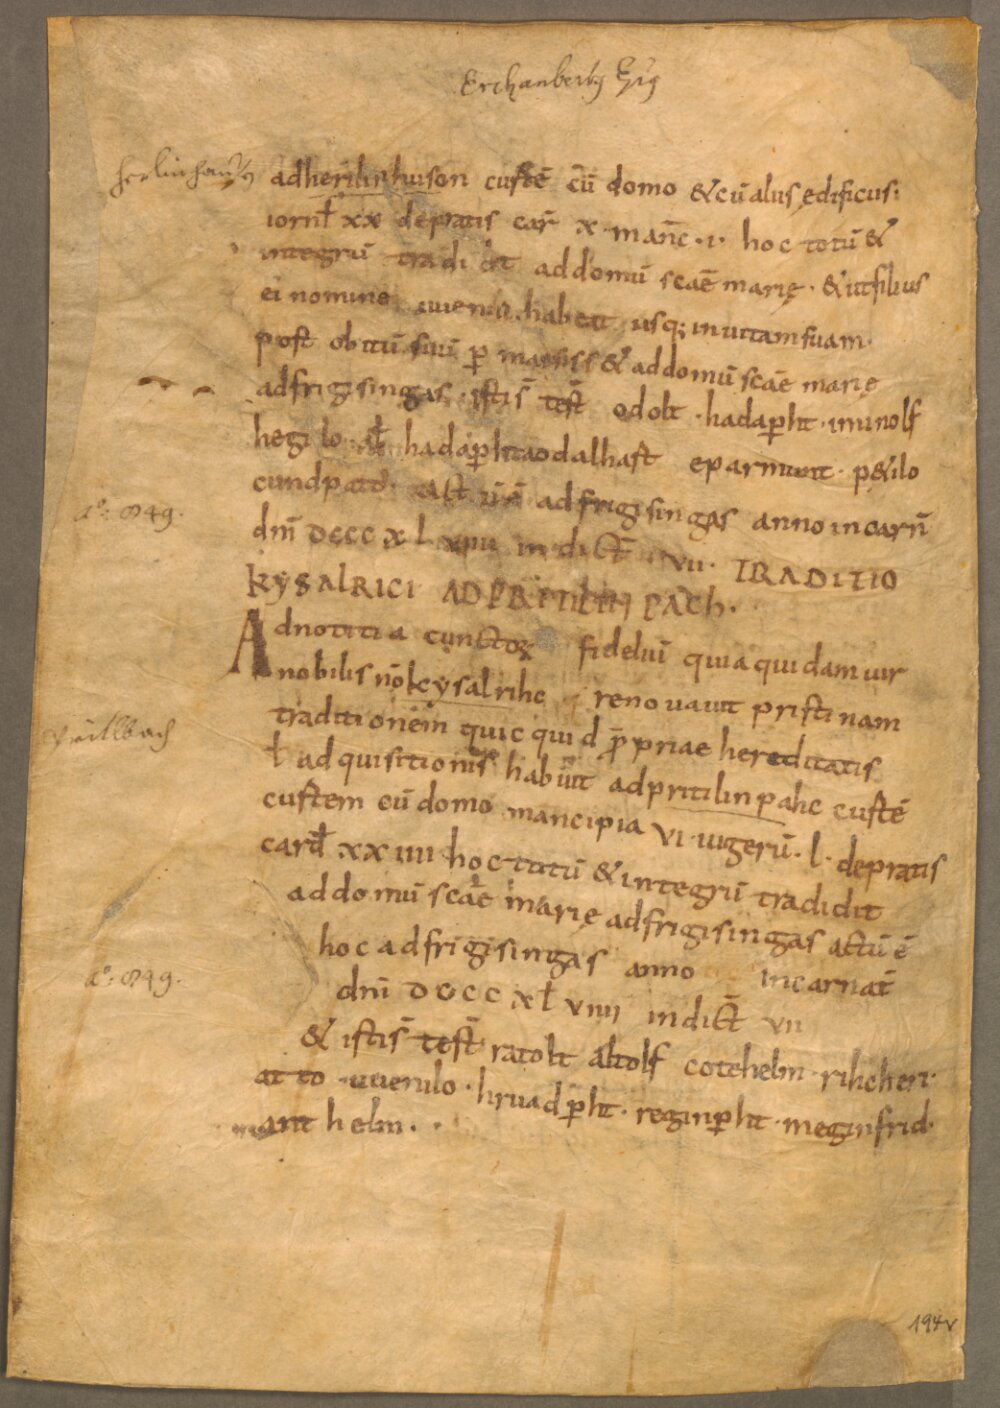 Erchanbertg
adherilinhuson custē cū domo & cū aliis edificiis.
iornł xx depratis car̄ x. manc̄. i. hoc totū &
integrū tradidit addomū scaē marię. & ut filius
ei nomine habeat usq; in uitam suam.
post obitū suū & addomū scaē marię
adfrigisingas. istis̄ test̄ odolt. hadaꝑht. iminolf
hegilo. hadaꝑht aodalhaft eparmunt. p&ilo
cundpato. Act̄ ē adfrigisingas anno incarn̄
dn̄i DCCC XL VIIII indict̄ VII. TRADITIO
KYSALRICI AD PRITILIN PACH.
Ad notitia cunctoꝝ fideliū quia quidam uir
nobilis nō kysalrihc renouauit pristinam
traditionem quicquid p̄priae hereditatis
ł adquisitionis habuit adpritilinpahc custē
custem cū domo mancipia VI iugerū. l. depratis
card̄ xxiiii hoc totū & integrū tradidit
addomū scaē marię adfrigisingas actū ē
hoc adfrigisingas anno incarnat̄
dn̄i DCCC XL VIIII indict̄ VII
& istis̄ test̄ ratolt altolf cotehelm. rihcheri.
atto. uuenilo. hruadꝑht. reginꝑht. meginfrid.
anthelm.
aº: 849.
aº: 849.
194v